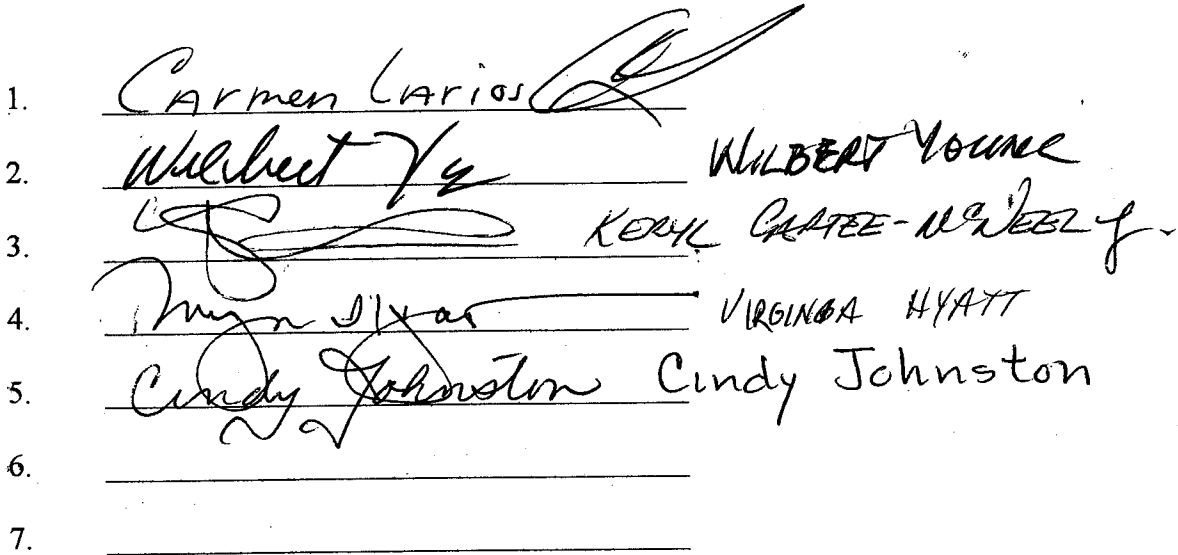 1. Carmen Larios
2. Wilbert Yg WILBERT YOUNG
3. KERYL CARTEE-McNEELY.
4. VIRGINIA HYATT
5. Cindy Johnston Cindy Johnston
6.
7.